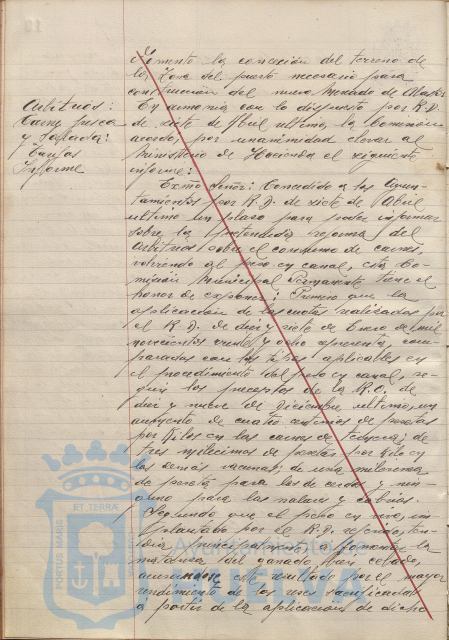 Fomento la concesión del terreno de
la Zona del puerto necesario para
construcción del nuevo Mercado de Abastos
Arbitrios:
Carne fresca
y salada:
Tarifas
Informe
En armonía con lo dispuesto por R.D.
de siete de Abril último, la Comisión
acordó, por unanimidad elevar al
Ministerio de Hacienda el siguiente
informe:
Excmo Señor: Concedido a los Ayun-
tamientos por R.D. de siete de Abril
último un plazo para poder informar
sobre la pretendida reforma del
Arbitrio sobre el consumo de carnes,
volviendo al peso en canal, esta Co-
misión Municipal Permanente tiene el
honor de exponer: Primero que la
aplicación de las cuotas realizadas por
el R.D. de diez y siete de Enero de mil
novecientos veinte y ocho representa, com-
paradas con los tipos aplicables en
el procedimiento del peso en canal, se-
gún los preceptos de la R.O. de
diez y nueve de Diciembre último, un
aumento de cuatro céntimos de pesetas
por Kilos en las carnes de ; de
tres milésimas de pesetas por Kilo en
las demás vacunas; de una milésima
de peseta para las de cerdas y nin-
guno para las lanares y cabríos.
Segundo que el peso en vivo, im-
plantado por el R.D. referido, ten-
día principalmente a fomentar la
matanza del ganado bien cebado,
este resultado por el mayor
rendimiento de las reses sacrificadas
a partir de la aplicación de dicho
PORTUS MARIS ET TERRAE
Ayuntamiento de
HUELVA